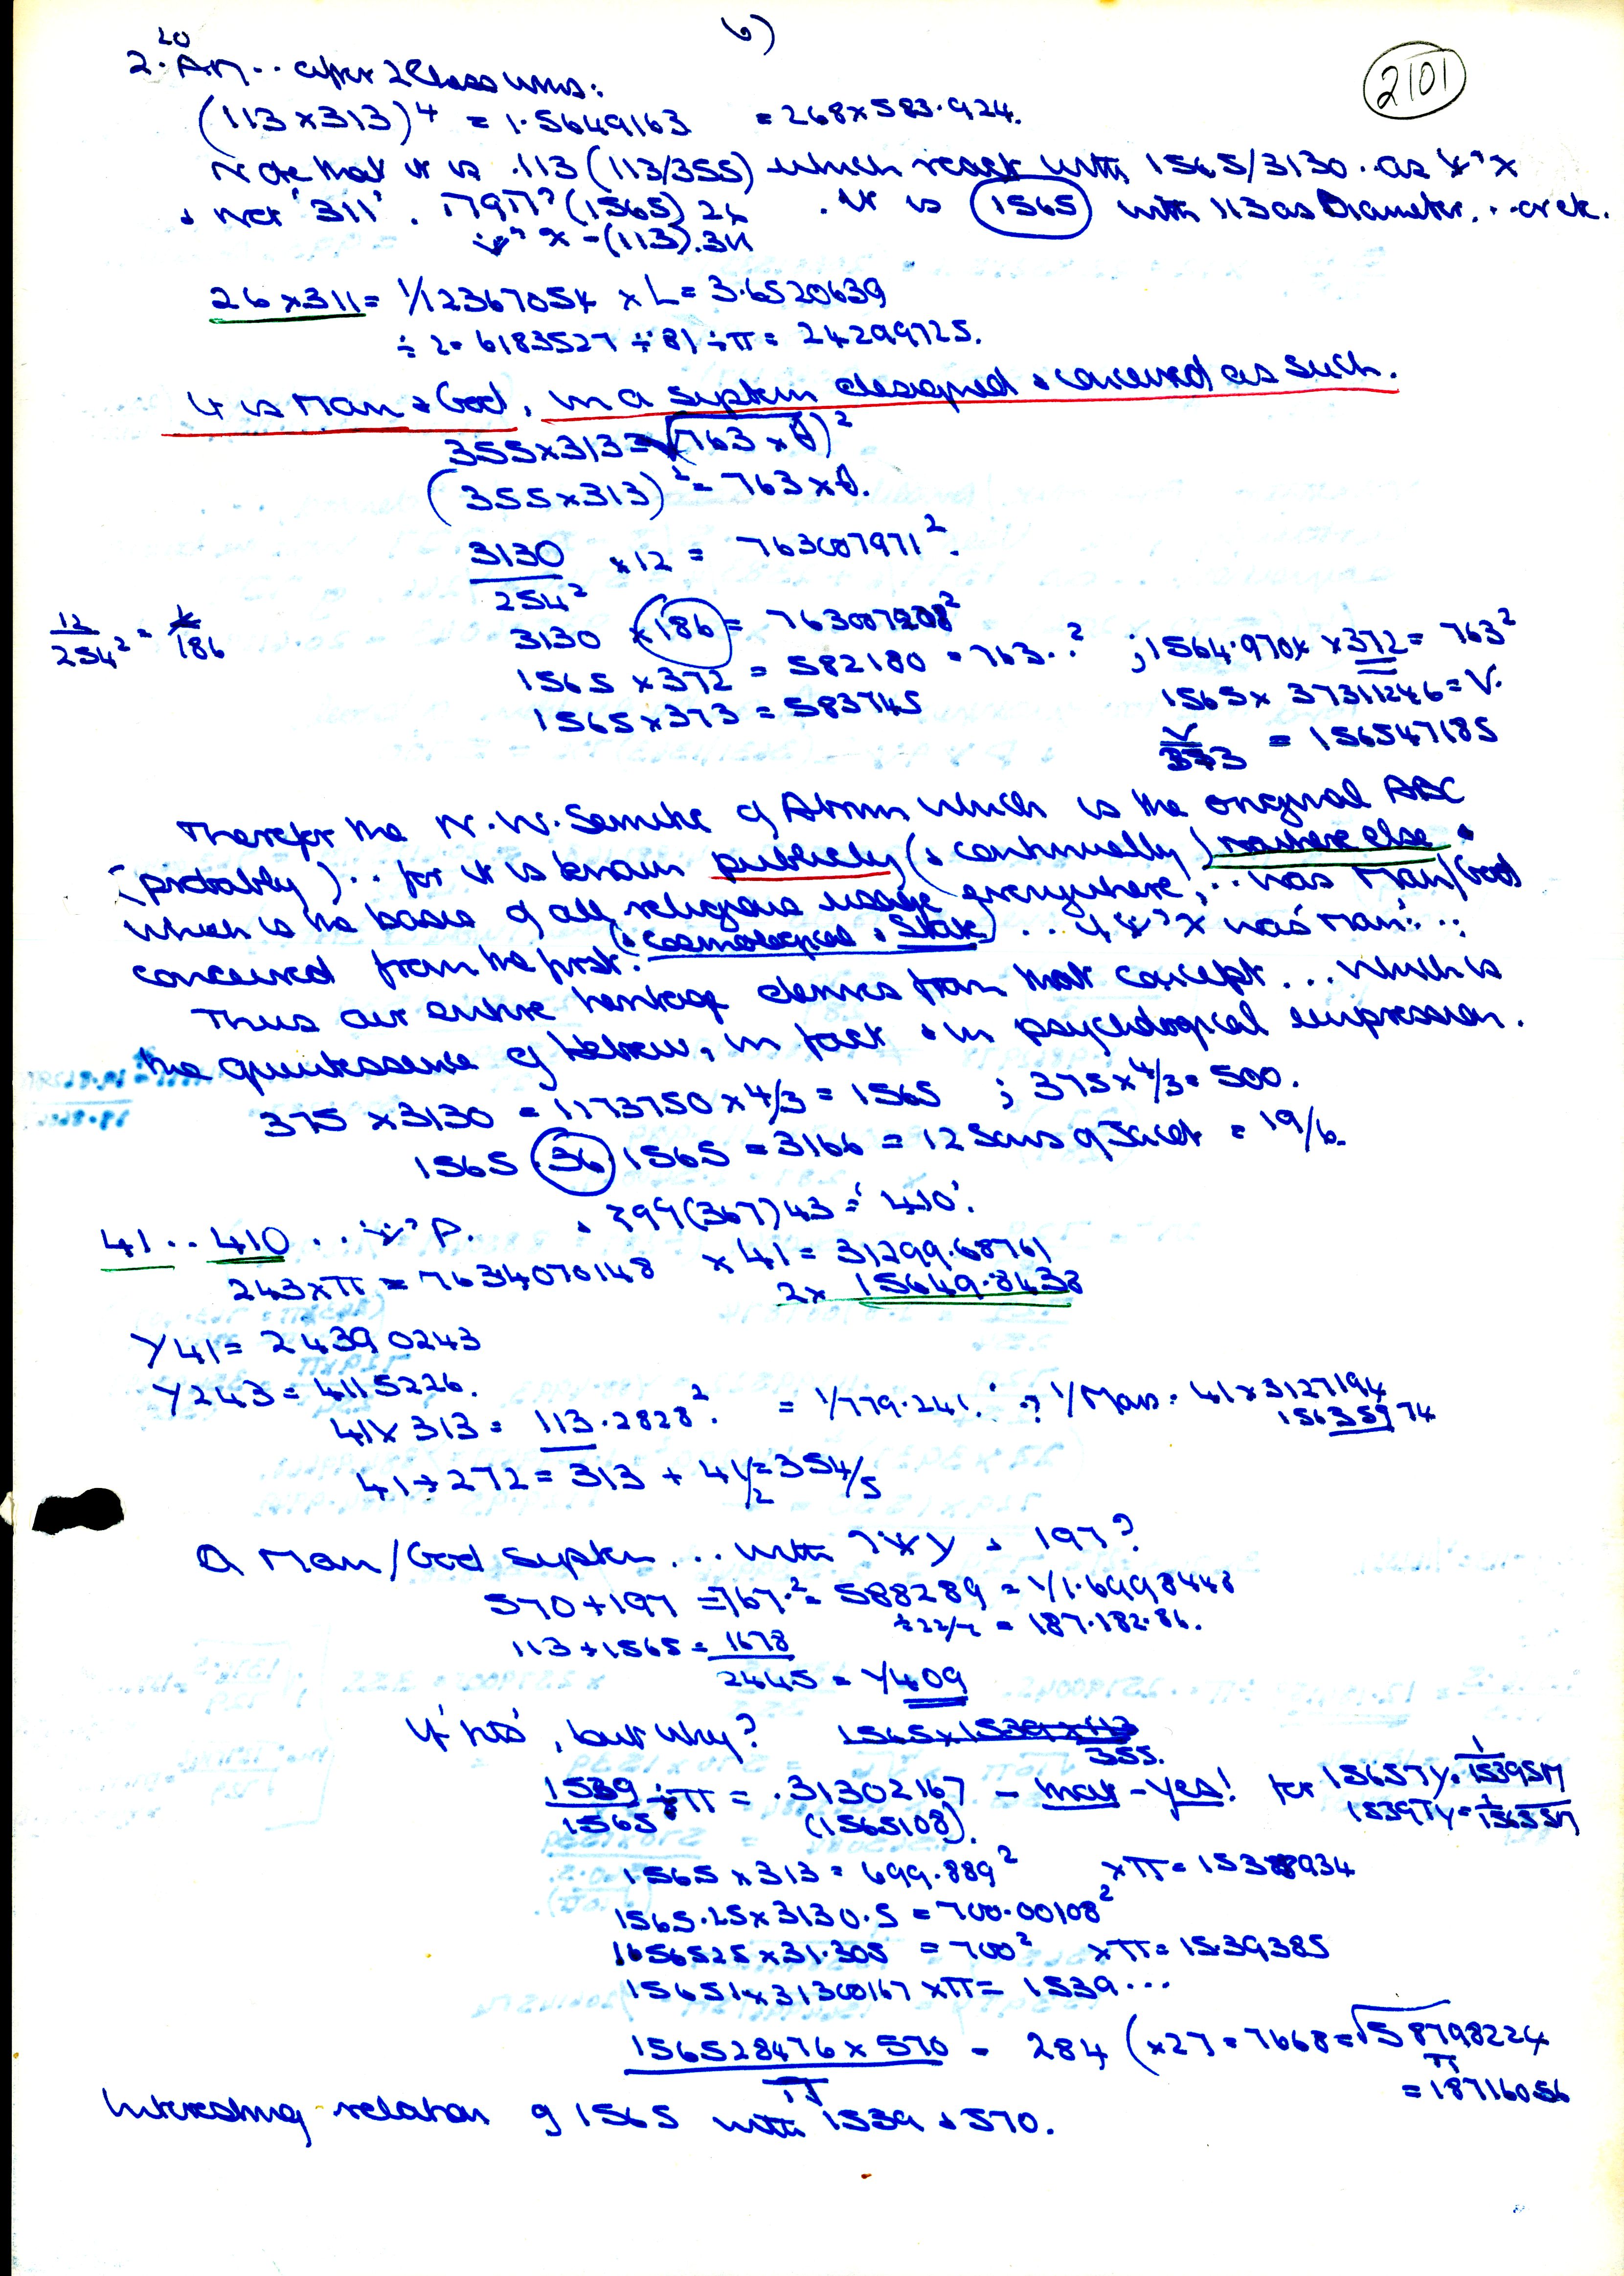 6)
2101
2.20 AM.. after 2 Class wins.
(113 x 313)⁴ = 1.5649163 = 268 x 583.924.
Note that it is .113 (113/355) which react with 1565/3130. as
& not '311'. (1565) 26 . It is 1565 with 113 as Diameter... or etc.
x - (113).311
26 x 311 = 1/12367054 x L = 3.6520639
÷ 2 = 6183527 ÷ 81 ÷ π = 24299725.
It is Man & God, in a system designed & conceived as such.
355 x 313 = √(763 x θ)²
(355 x 313)² = 763 x θ.
3130/254² x 12 = 763007971².
12/254² = 1/186
3130 x 186 = 763007208²
1565 x 372 = 582180 = 763..² ; 1564.970x x 372 = 763²
1565 x 373 = 583745
1565 x 37311246 = V.
V/373 = 156547185
Therefor the N.W. Semitic of Ahrm which is the original ABC
(probably).. for it is known publicly (& continually) nowhere else &
which is the basis of all religious usage everywhere,.. was Man/God
(& cosmological & State)... if was 'Man'...
conceived from the first.
Thus our entire heritage derives from that concept... which is
the quintessence of Hebrew, in fact & in psychological impression.
375 x 3130 = 1173750 x 4/3 = 1565 ; 375 x 4/3 = 500.
1565 .36. 1565 = 3166 = 12 Sons of Jacob = 19/6.
& (367) 43 = '410'.
41.. 410 ..
243 x π = 7634070148 x 41 = 31299.68761
2 x 15649.8438
1/41 = 24390243
1/243 = 4115226.
41 x 313 = 113.2828². = 1/779.241. ? 1/Man. 41 x 3127194
15635974
41 + 272 = 313 + 41/2 = 354/5
A Man/God System... with & 197?
570 + 197 = 767.² = 588289 = 1/1.6998448
÷ 22/7 = 187.182.86.
113 + 1565 = 1678
2445 = 1/409
If 'his', but why?
355.
1539/1565 ÷ π = .31302167 - max - yes! for 1565Ty = 1/1539SM
(1565108). 1539Ty = 1/1565SM
1565 x 313 = 699.889² x π = 15388934
1565.25 x 3130.5 = 700.00108²
1656525 x 31.305 = 700² x π = 15.39385
15651 x 31300167 x π = 1539...
156528476 x 570/π = 284 (x 27 = 7668 = √58798224
π
= 18716056
Interesting relation of 1565 with 1539 & 570.